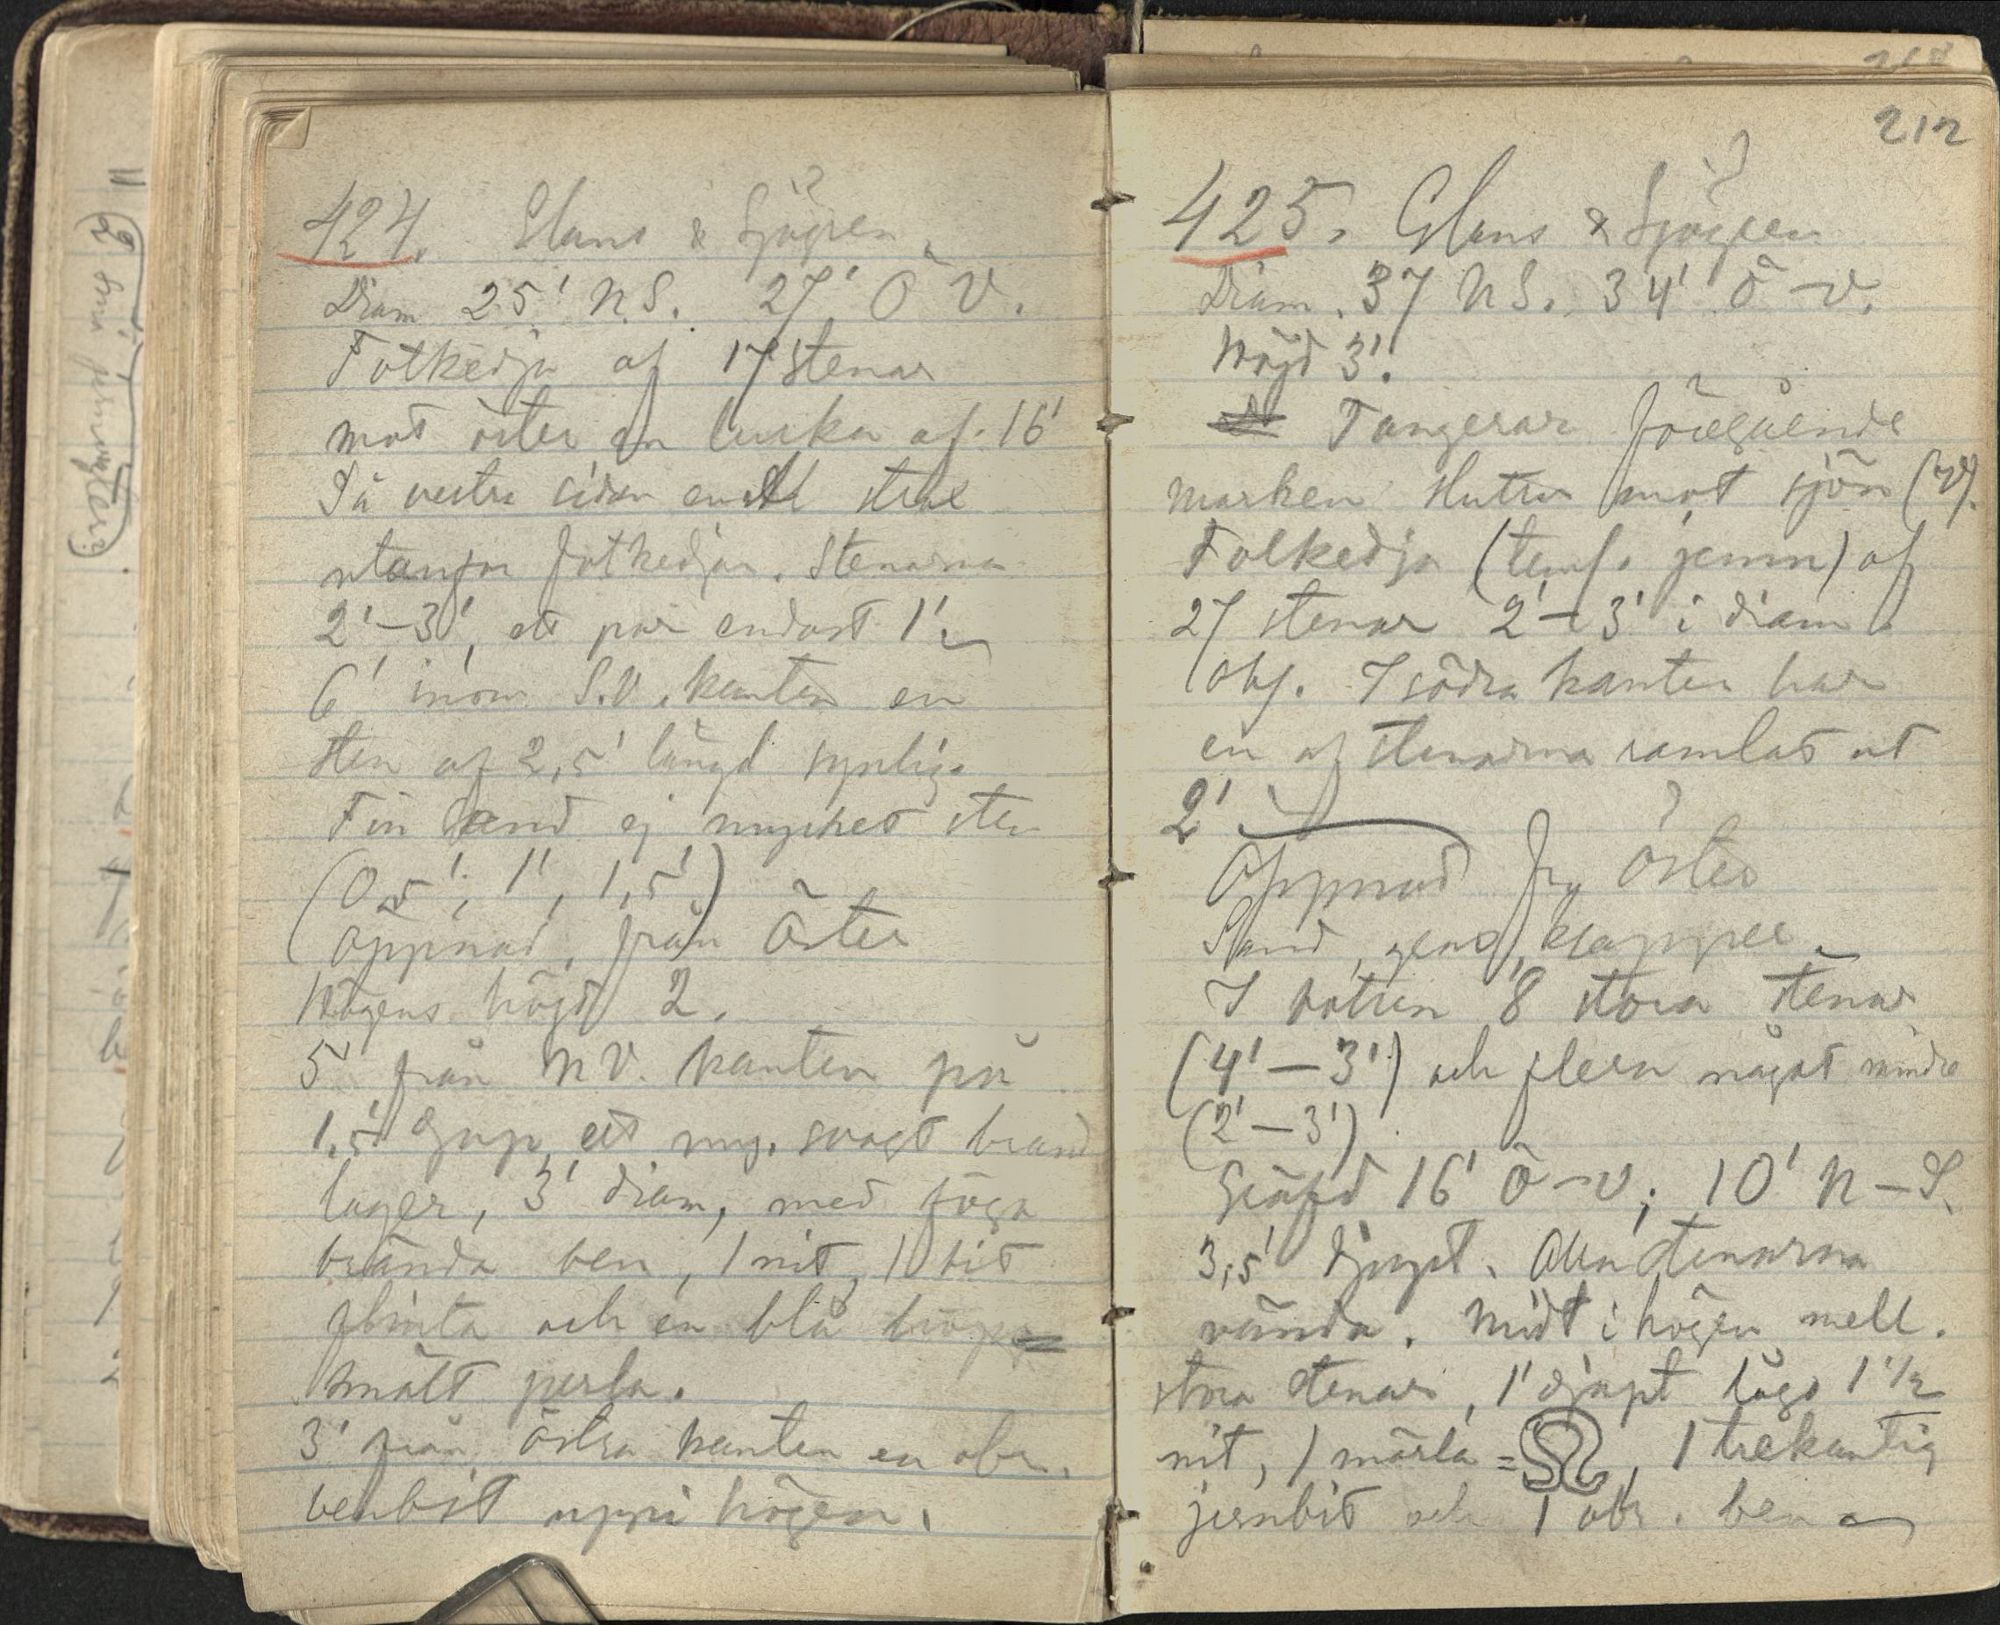 424. Glans & Sjögren.
Diam 25' N.S. 27' Ö V.
Fotkedja af 17 stenar
mot öster en lucka af 16'
På vestra sidan en st strax
utanför fotkedjan. Stenarna
2'–3', ett par endast 1'.
6' inom S.V. kanten en
sten af 2,5' längd synlig.
Fin sand ej mycket sten
(0,5'; 1', 1,5')
öppnad från Öster
Högens höjd 2.
5' från NV. kanten på
1,5' djup ett myc. svagt brand
lager, 3' diam, med föga
brända ben, 1 nit, 1 bit
flinta och en blå
smält perla.
3' från Östra kanten en obr.
benbit uppi högen.
212
425. Glans & Sjögren
Diam. 37 NS. 34' Ö–V.
Höjd 3'.
Tangerar föregående
marken sluttar mot sjön (V).
Fotkedja (teml. jemn) af
27 stenar 2'–3' i diam
obs. I södra kanten har
en af stenarna ramlat ut
2'.
Öppnad fr Öster
Sand, grus, klapper.
I botten 8 stora stenar
(4'–3') och flera något mindre
(2'–3')
Gräfd 16' Ö–V; 10' N–S.
3,5' djupt. Alla stenarna
vända. Midt i högen mell.
stora stenar, 1' djupt lågo 1 1/2
nit, 1 märla = , 1 trekantig
jernbit och 1 obr. ben